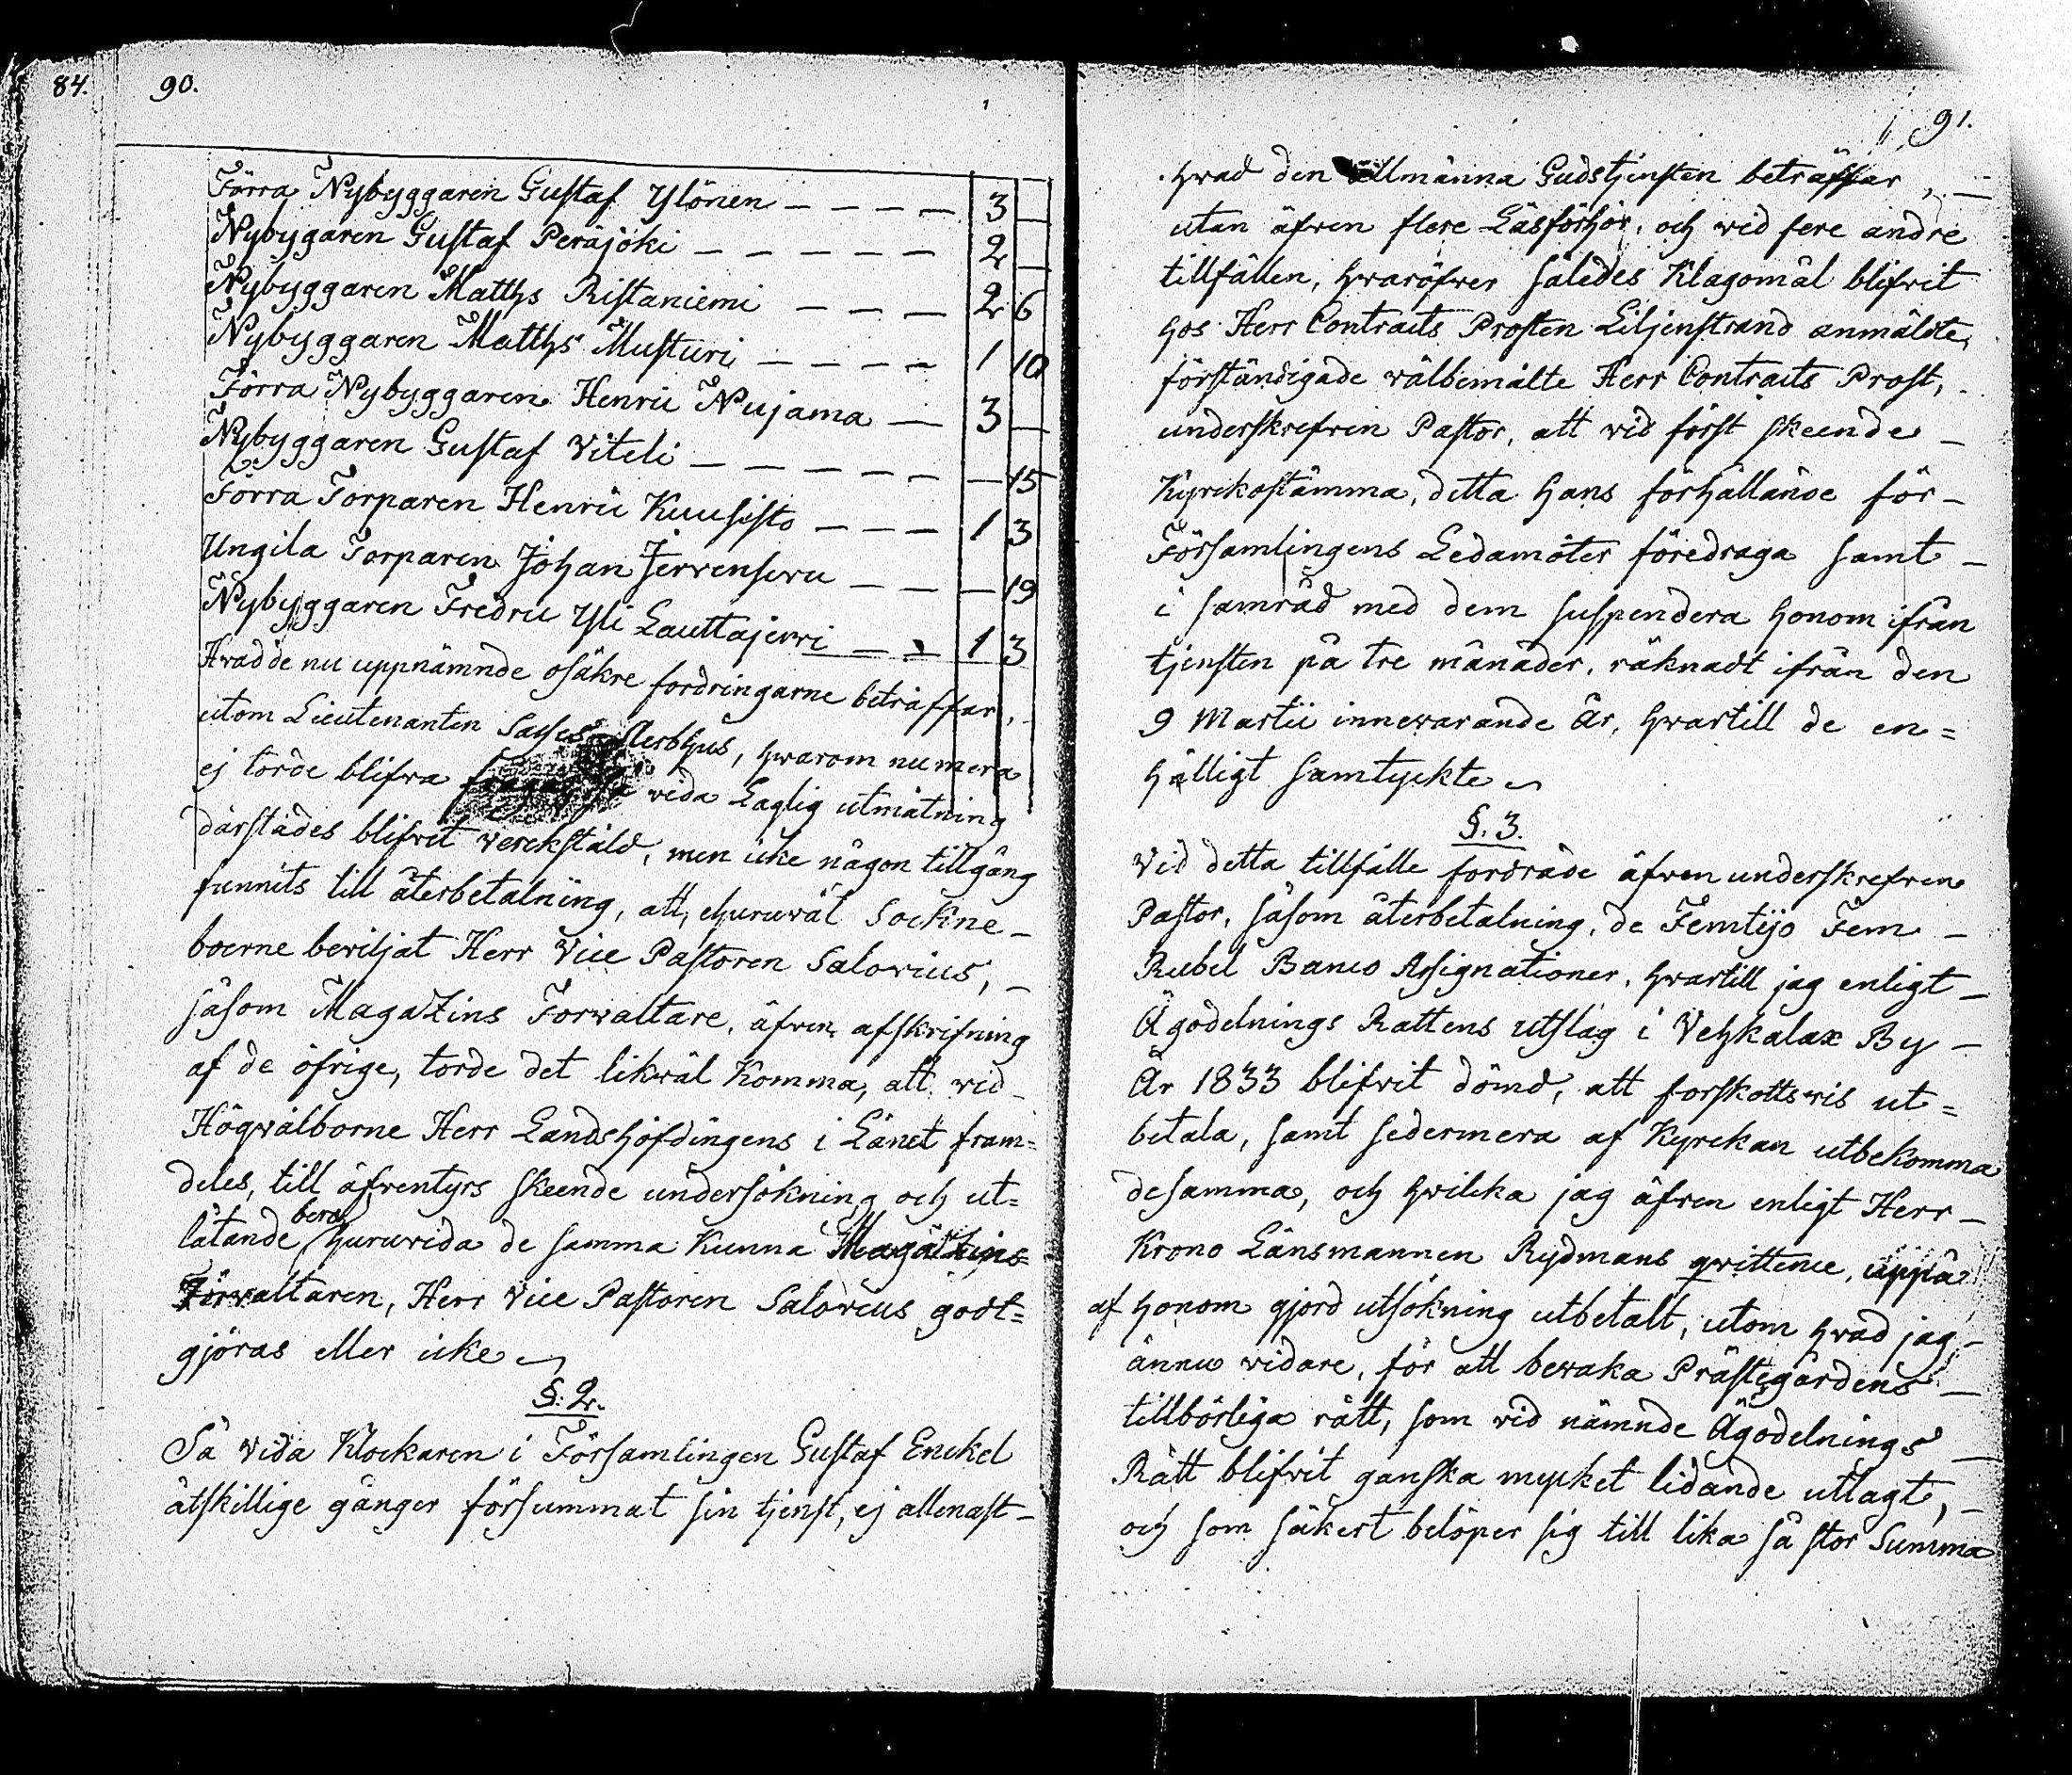 84. 90.
Förra Nybyggaren Gustaf Ylönen — — — — 3 —
Nybygaren Gustaf Peräjoki — — — — — 2 —
Nybyggaren Matths Ristaniemi — — — 2 6
Nybyggaren Matths Musturi — — — — 1 10
Förra Nybyggaren Henric Nujama — 3 —
Nybyggaren Gustaf Viteli — — — — — — 15
Förra Torparen Henric Kuusisto — — — 1 3
Ungila Torparen Johan — — — 19
Nybyggaren Fredric Yli Lauttajervi — — 1 3
Hvad de nu uppnämnde osäkre fordringarne beträffar,
utom Lieutenanten Sterbhus, hwarom numera
ej torde blifva vida Laglig utmätning
därstädes blifvit verckstäld, men icke någon tillgång
funnits till återbetalning, att, ehuruwäl Sockne-
boerne beviljat Herr Vice Pastoren Salovius, —
såsom Magazins Forvaltare, äfven afskrifning
af de öfrige, torde det likväl Komma, att vid
Högvälborne Herr Landshöfdingens i Länet fram=
deles, till äfventyrs skeende undersökning och ut=
låtande bero, huruvida de samma Kunna Magatzins=
Förvaltaren, Herr Vice Pastoren Salovius godt=
gjöras eller icke
§. 2.
Så vida Klockaren i Församlingen Gustaf Enckel
åtskillige gånger försummat sin tjenst, ej allenast —
91.
hvad den allmänna Gudstjensten beträffar, —
utan äfven flere Läsförhör, och vid fere andre
tillfällen, hvaröfver således Klagomål blifvit
hos Herr Contracts Prosten Liljenstrand anmäldte,
förständigade välbemälte Herr Contracts Prost,
underskrefven Pastor, att vid först skeende —
Kyrckostämma, detta hans förhållande för —
Församlingens Ledamöter föredraga samt —
i samråd med dem suspendera honom ifrån
tjensten på tre månader, räknadt ifrån den
9 Martii innevarande år, hvartill de en=
hälligt samtyckte
§. 3.
Vid detta tillfälle fordrade äfven underskrefven
Pastor, såsom återbetalning, de Femtijo Fem —
Rubel Banco Assignationer, hvartill jag enligt —
Ägodelnings Rattens utslag i Vehkalax By —
År 1833 blifvit dömd, att forskottsvis ut=
betala, samt sedermera af Kyrckan utbekomma
desamma, och hvilcka jag äfven enligt Herr —
Krono Länsmannen Rydmans qvittence, uppå
af honom gjord utsökning utbetalt, utom hvad jag —
ännu vidare, för att bevaka Prästegårdens —
tillbörliga rätt, som vid nämnde Ägodelnings —
Rätt blifvit ganska mycket lidande utlagt, —
och som säkert belöper sig till lika så stor Summa